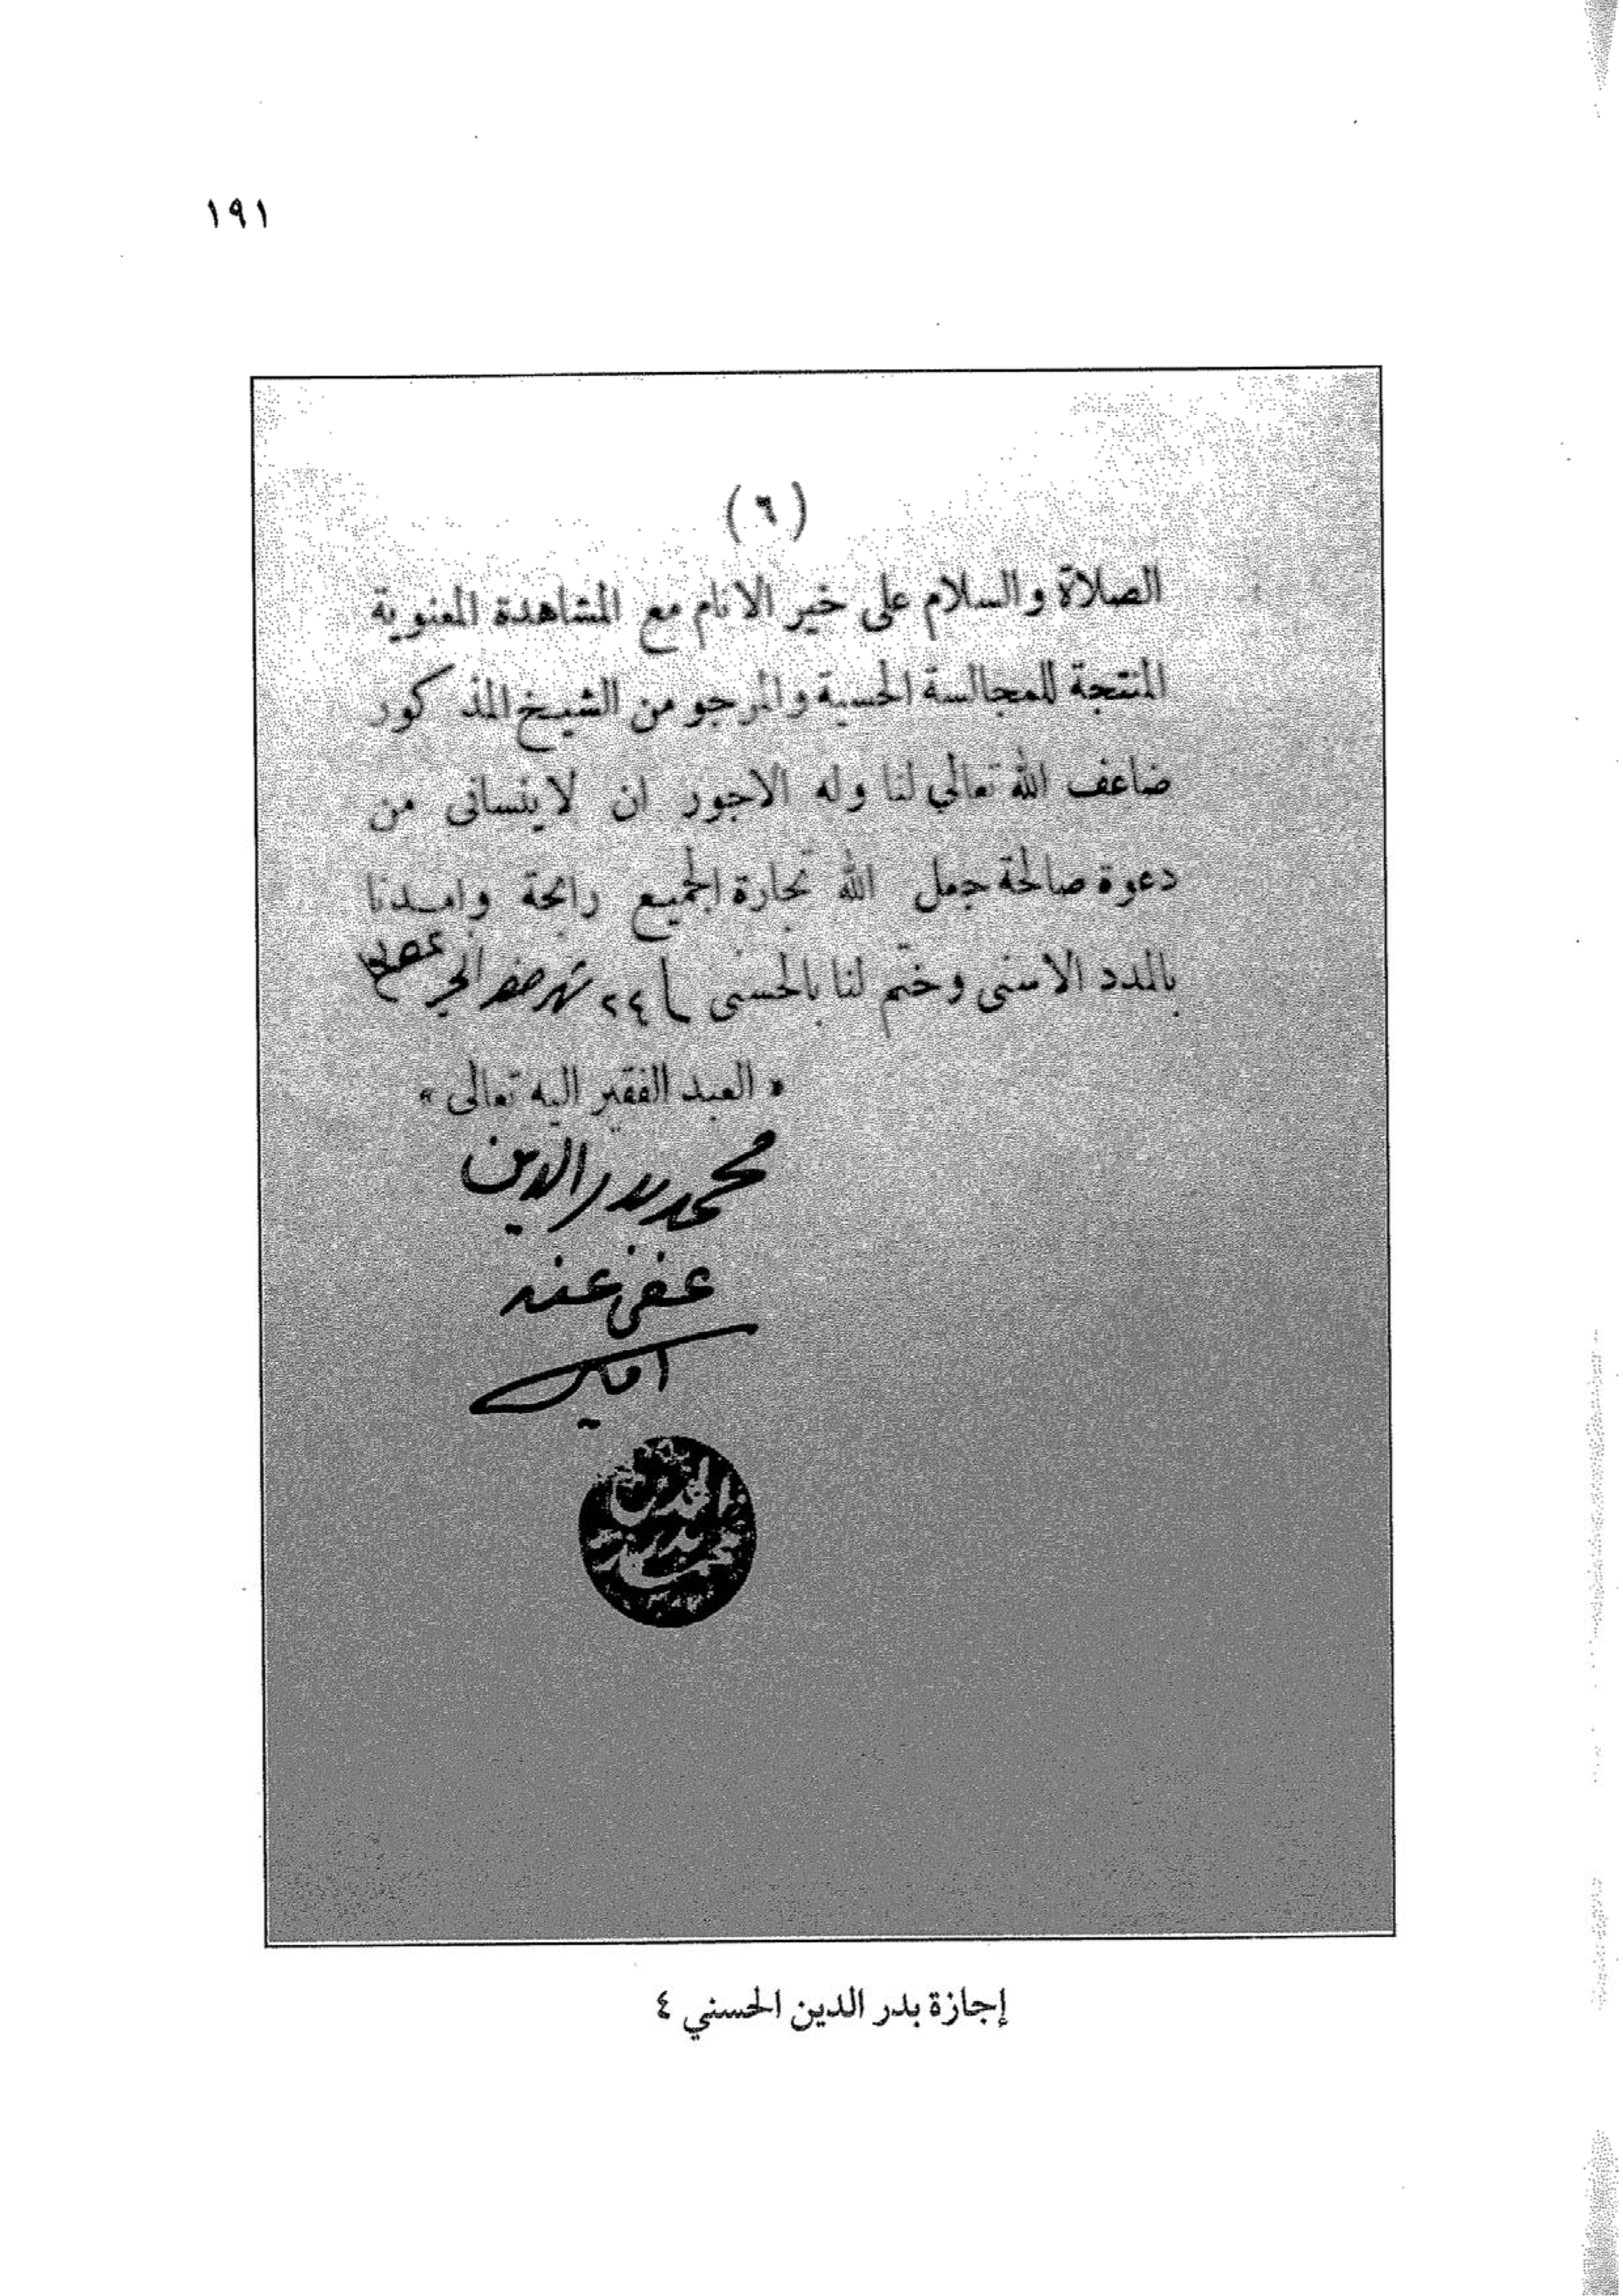 ١٩١
(٦)
الصلاة والسلام على خير الانام مع المشاهدة المعنوية
المنتجة للمجالسة الحسية والمرجو من الشيخ المذكور
ضاعف الله تعالى لنا وله الاجور ان لا ينسانى من
دعوة صالحة جعل الله تجارة الجميع رابحة وامدنا
بالمدد الاسنى وختم لنا بالحسنى ٢٤ شهر صفر الخير
« العبد الفقير اليه تعالى »
محمد بدر الدين
عفي عنه
امين
إجازة بدر الدين الحسني ٤